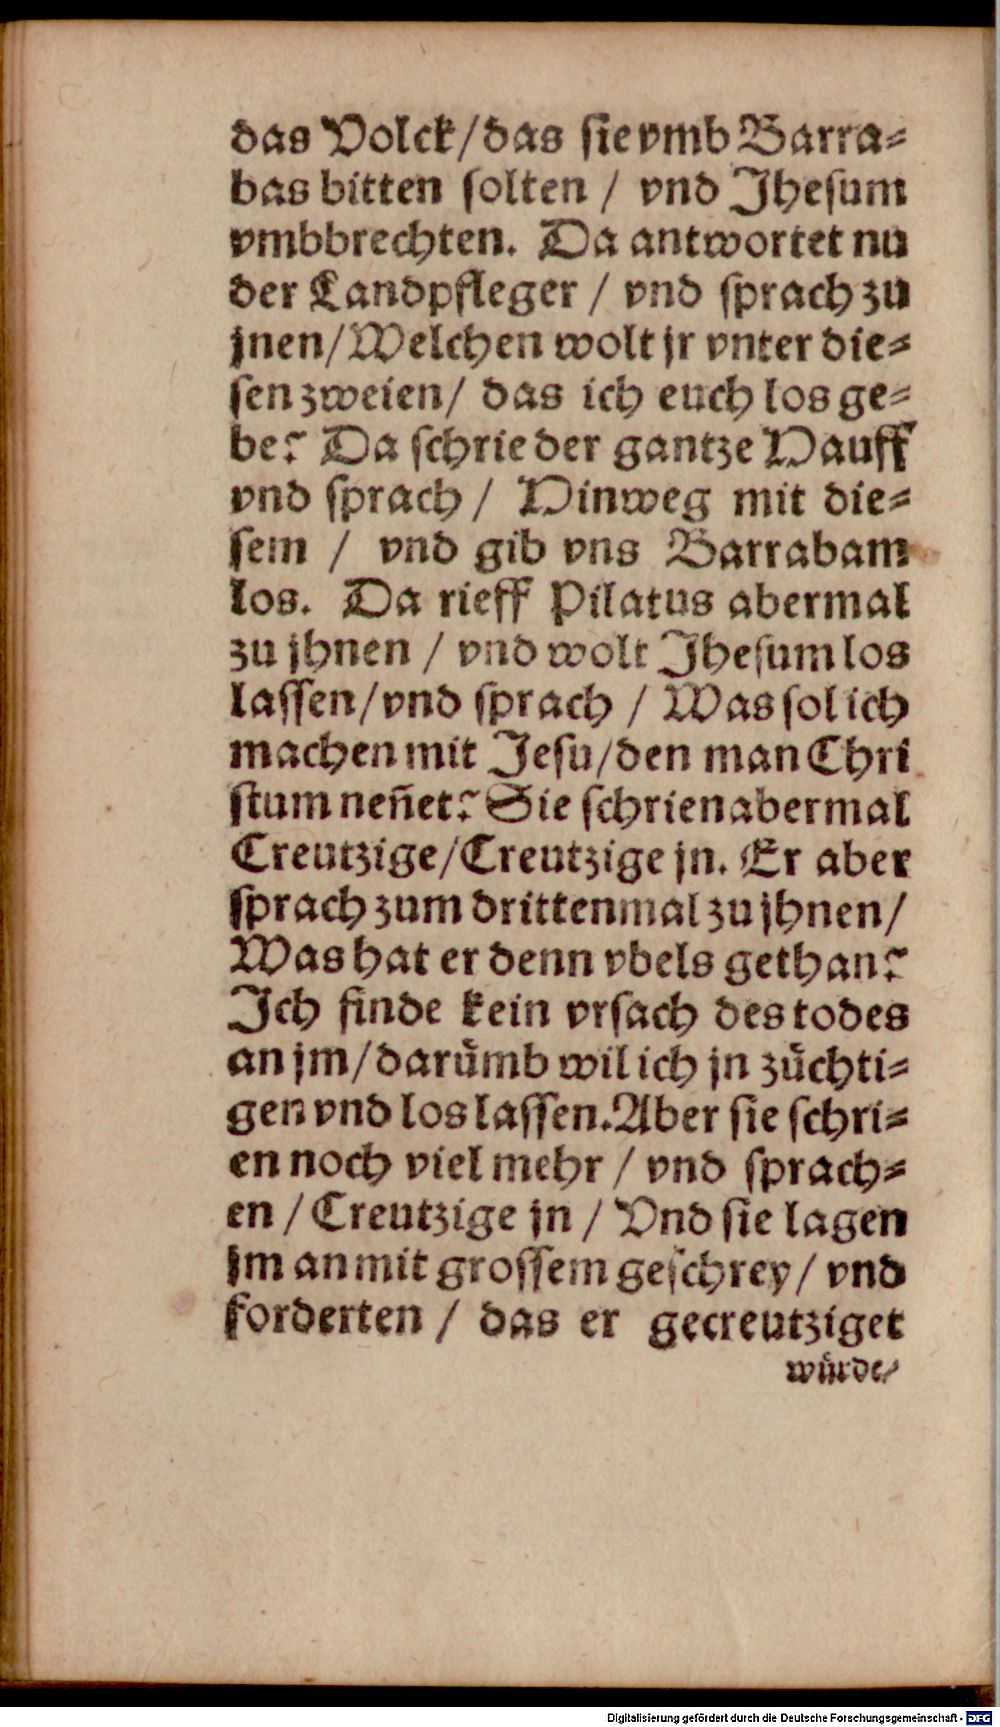 das Volck/das sie vmb Barra⸗
bas bitten solten / vnd Jhesum
vmbbrechten. Da antwortet nu
der Landpfleger / vnd sprach zu
jnen/Welchen wolt jr vnter die⸗
sen zweien/ das ich euch los ge⸗
be? Da schrie der gantze Hauff
vnd sprach / Hinweg mit die⸗
sem / vnd gib vns Barrabam
los. Da rieff Pilatus abermal
zu jhnen / vnd wolt Jhesum los
lassen/vnd sprach / Was sol ich
machen mit Jesu/den man Chri
stum nen̄et? Sie schrien abermal
Creutzige/Creutzige jn. Er aber
sprach zum drittenmal zu jhnen/
Was hat er denn vbels gethan?
Ich finde kein vrsach des todes
an jm/darůmb wil ich jn zůchti⸗
gen vnd los lassen. Aber sie schri⸗
en noch viel mehr / vnd sprach⸗
en / Creutzige jn / Vnd sie lagen
jm an mit grossem geschrey/ vnd
forderten / das er gecreutziget
wůrde/
Digitalisierung gefördert durch die Deutsche Forschungsgemeinschaft - DFG